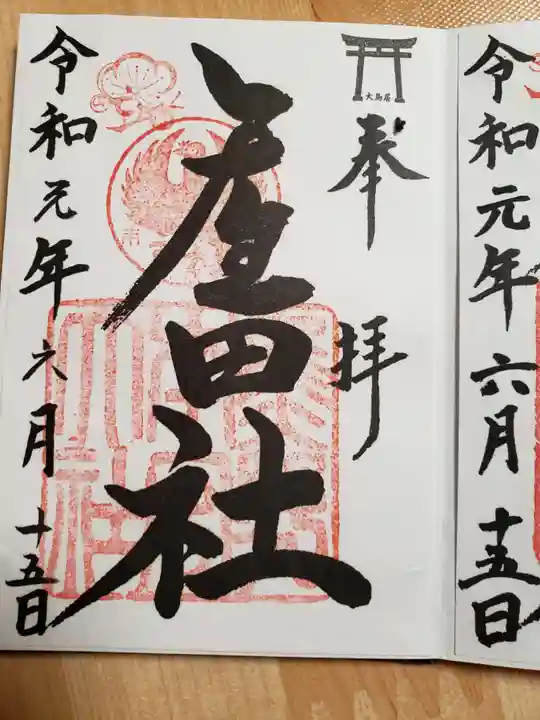 令和元年六月十五日
大鳥居
奉拝
産田社
令和元年六月十五日